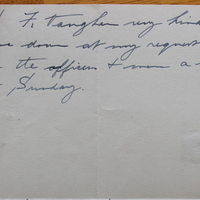 F. Vaughan very kind
down at my request
the officers & men a
Sunday.